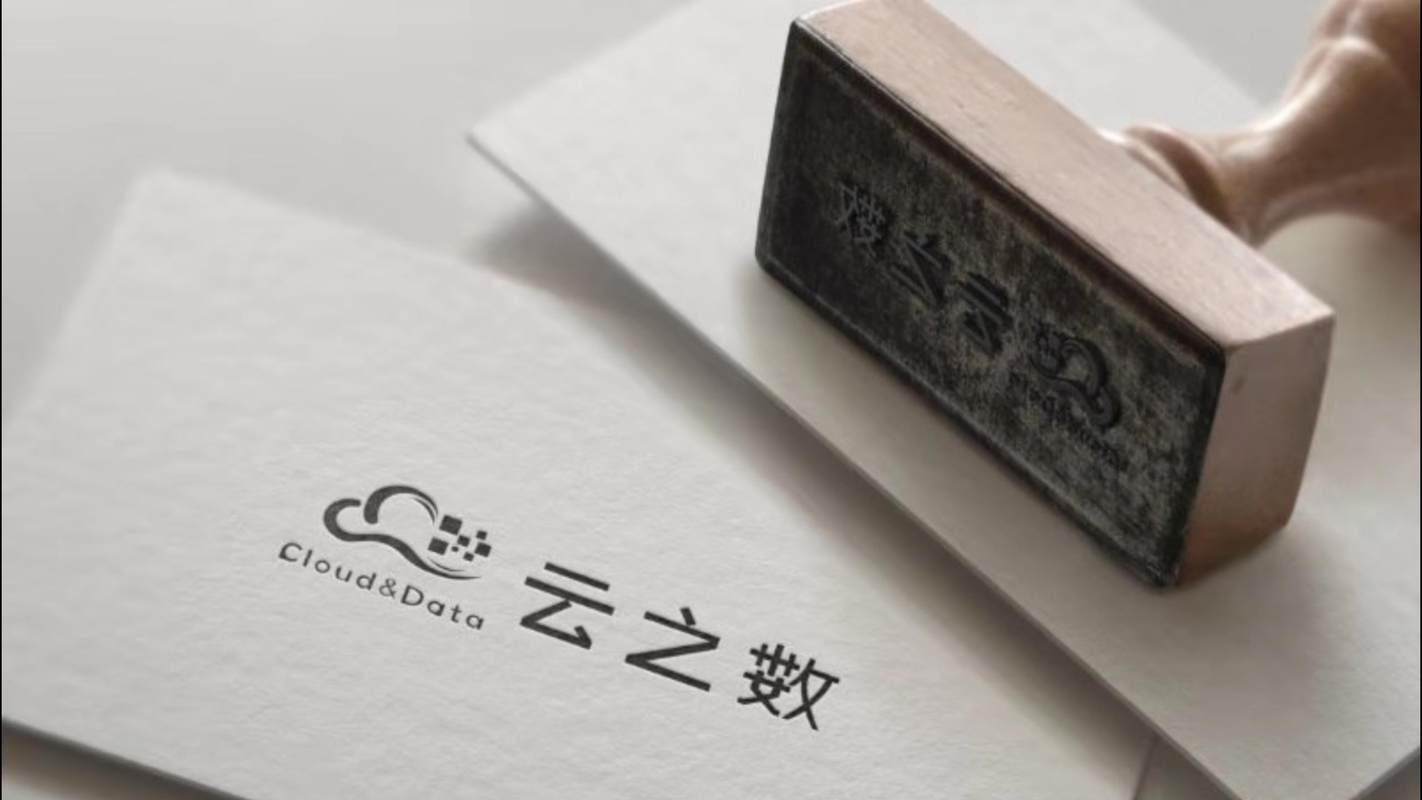 Cloud&Data
云之数
云之数